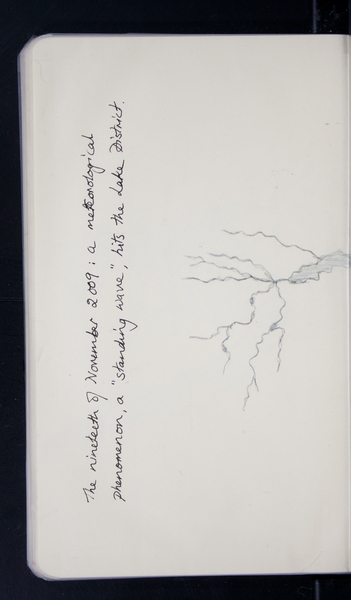 The nineteeth of November 2009: a meteorological
phenomenon, a "standing wave", hits the Lake District.